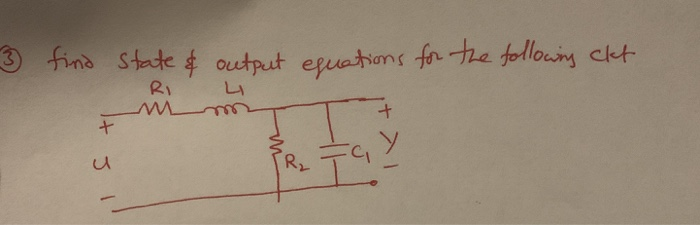 ③ find state & output equations for the following ckt
R1 L1
+ +
u R2 C1 y
- -